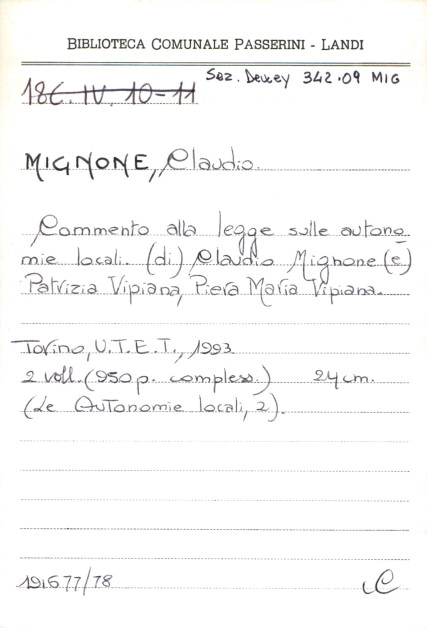 BIBLIOTECA COMUNALE PASSERINI - LANDI
18C. IV. 10-11 Sez. Dewey 342.09 MIG
MIGNONE, Claudio.
Commento alla legge sulle autono
mie locali. (di) Claudio Mignone (e)
Patrizia Vipiana, Piera Maria Vipiana.
Torino, U.T.E.T., 1993.
2 voll. (950 p. compless.) 24 cm.
(Le Autonomie locali, 2).
191677/78